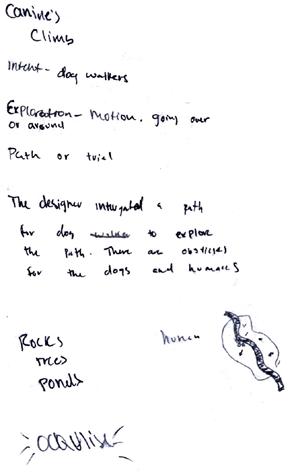 Canine's
Climb
Intent - dog walkers
Exploration - Motion. going over
or around
Path or trial
The designer intergated a path
for dog to explore
the path. There are obsticles
for the dogs and humans
Rocks
trees
ponds
human